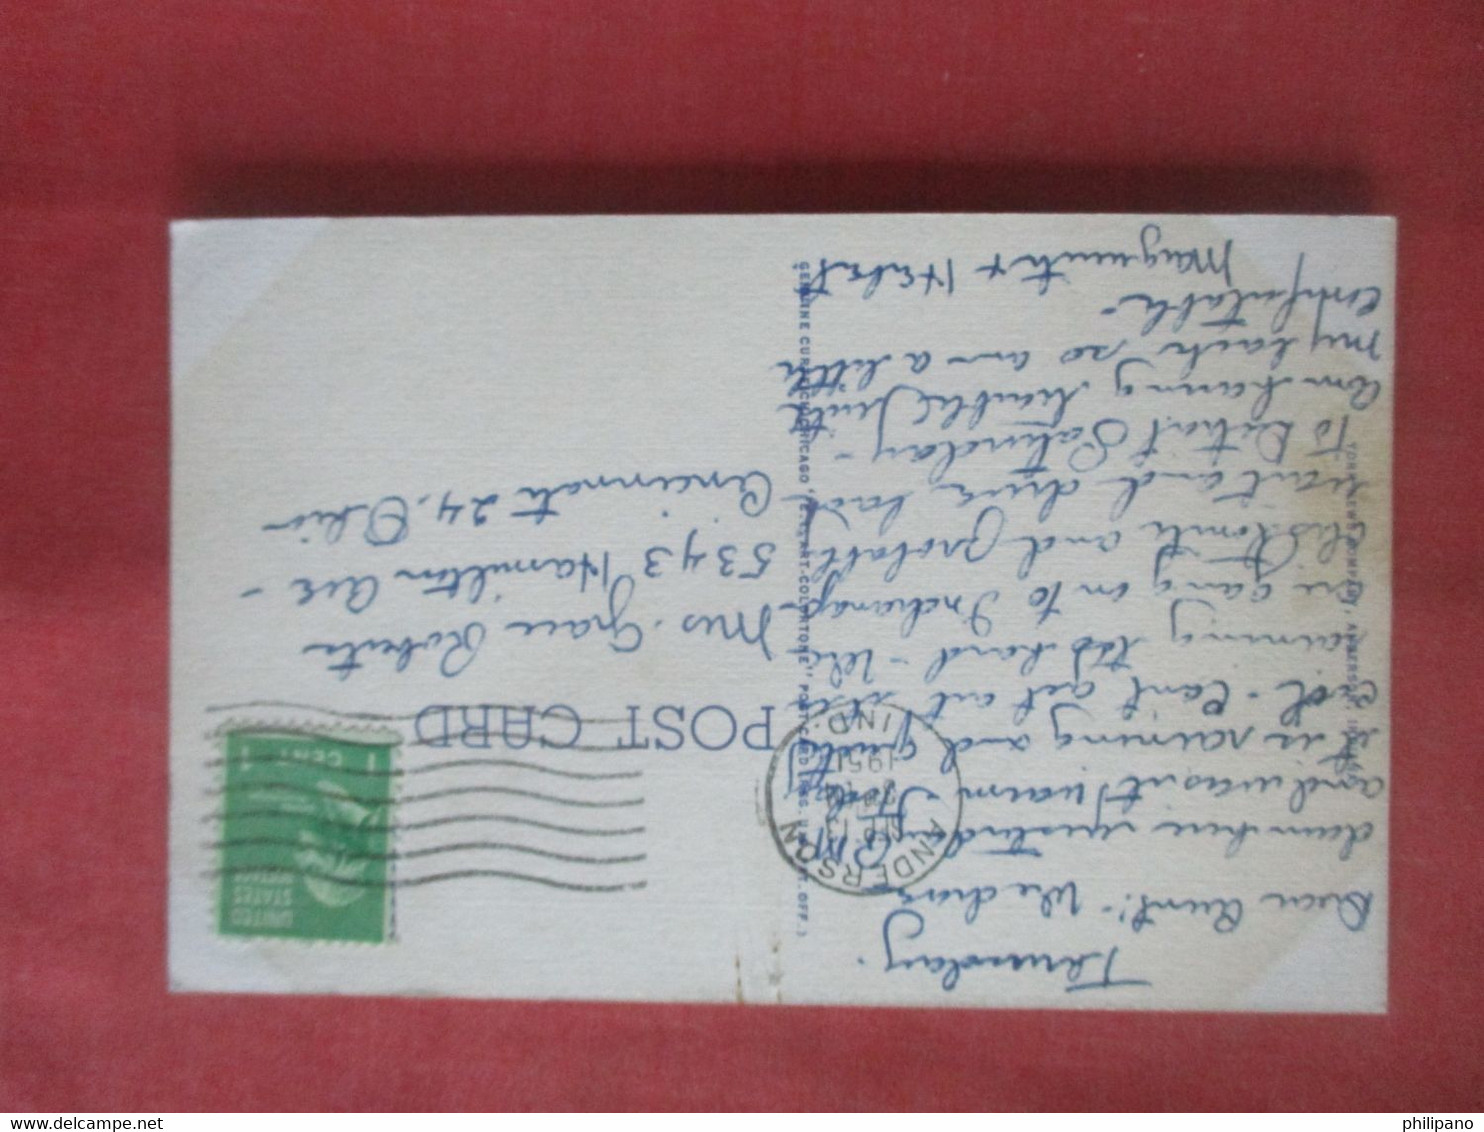 Thursday.
Dear Aunt:- We drove
down here yesterday PM
and wasn't warm - Today
it is raining and quite
cool - Can't get out it's
raining too hard - We
are going on to Indianap-
olis Tomto and probably
wait and drive back
to Detroit Saturday -
Am having trouble with
my back so am a little
comfortable -
Marguerite + Herbert
POST CARD
Mrs. Grace Roberts
5343 Hamilton Ave -
Cincinnati 24, Ohio
ANDERSON
SEP 13
1951
IND.
UNITED
STATES
1 CENT 1
GENUINE CURTEICH-CHICAGO "C.T. ART-COLORTONE" POST CARD (REG. U.S. PAT. OFF.)
philipano